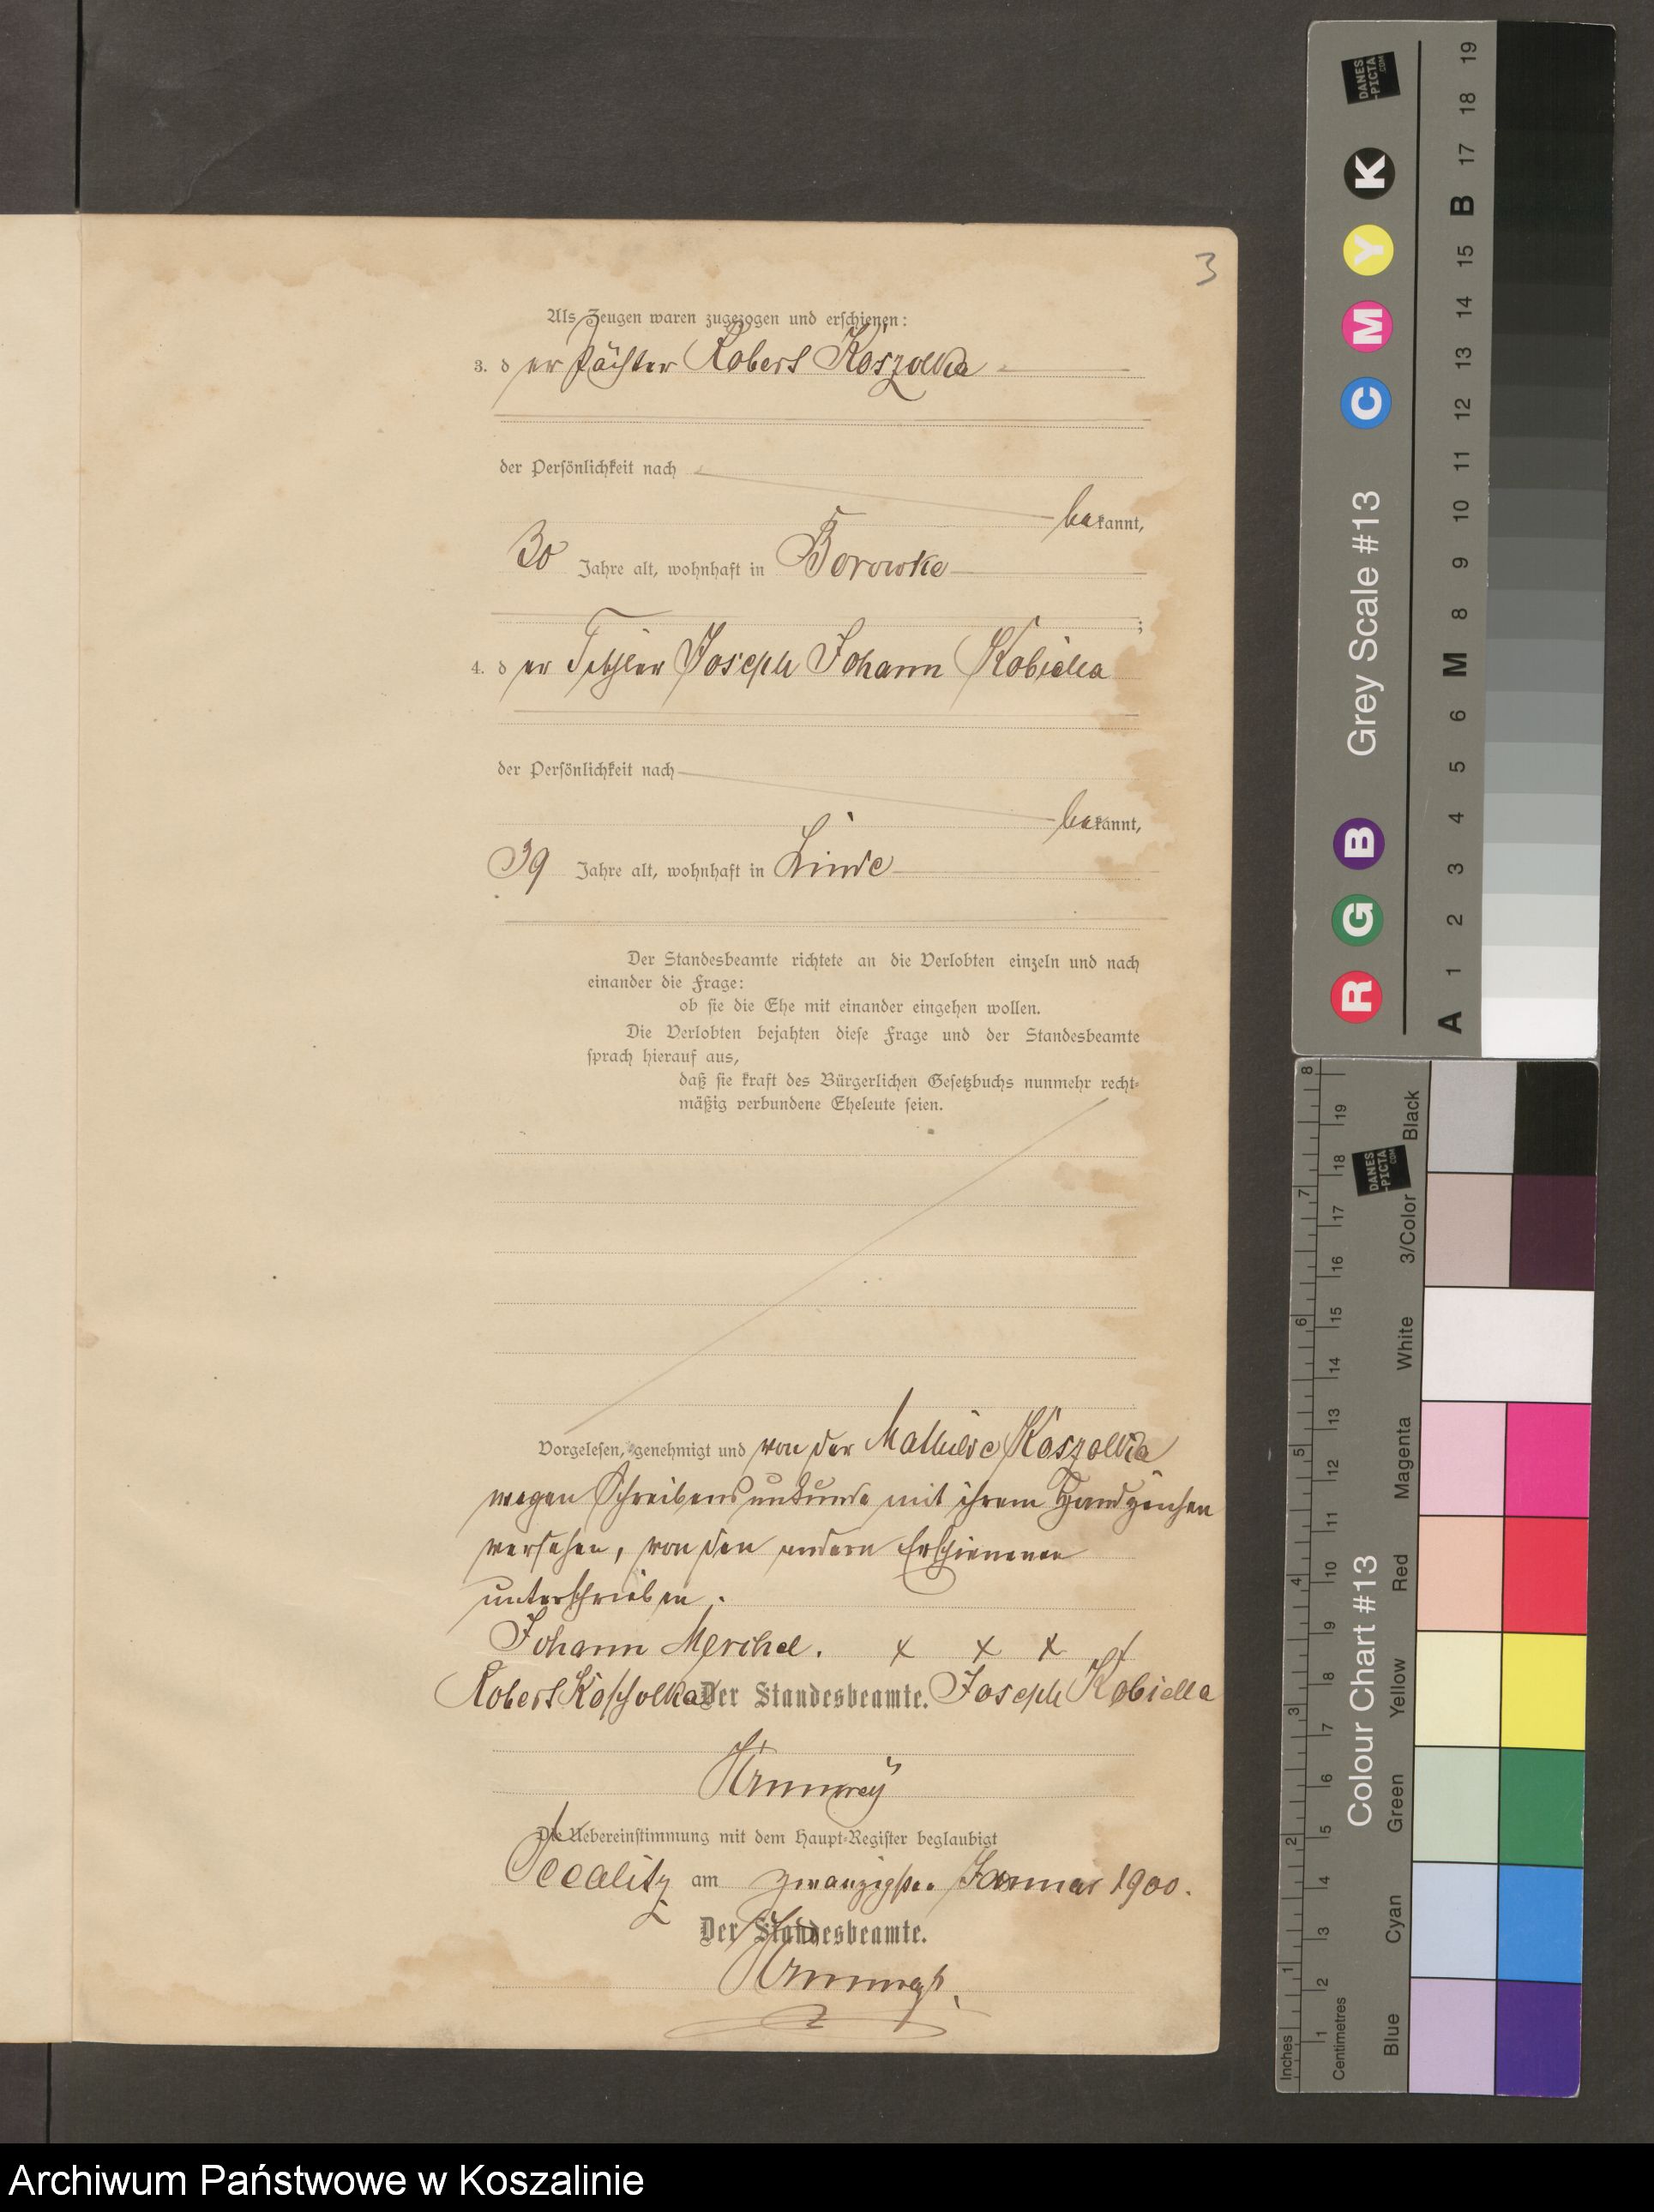 3
Als Zeugen waren zugezogen und erschienen:
3. der Pächter Robert Koszolka
der Persönlichkeit nach
bekannt,
30 Jahre alt, wohnhaft in Borowke
;
4. der Tischler Joseph Johann Kobiella
der Persönlichkeit nach
bekannt,
39 Jahre alt, wohnhaft in Linde
Der Standesbeamte richtete an die Verlobten einzeln und nach
einander die Frage:
ob sie die Ehe mit einander eingehen wollen.
Die Verlobten bejahten diese Frage und der Standesbeamte
sprach hierauf aus,
daß sie kraft des Bürgerlichen Gesetzbuchs nunmehr recht-
mäßig verbundene Eheleute seien.
Vorgelesen, genehmigt und von der Mathilde Koszolka
wegen Schreibensunkunde mit ihrem Handzeichen
versehen, von den andern Erschienenen
unterschrieben.
Johann Merchel. x x x
Robert Koscholka Der Standesbeamte. Joseph Kobiella
Die Uebereinstimmung mit dem Haupt-Register beglaubigt
am zwanzigsten Januar 1900.
Der Standesbeamte.
DANES-PICTA.COM
R G B Grey Scale #13 C M Y K
A 1 2 3 4 5 6 M 8 9 10 11 12 13 14 15 B 17 18 19
DANES-PICTA.COM
Colour Chart #13
Blue Cyan Green Yellow Red Magenta White 3/Color Black
Inches 1 2 3 4 5 6 7 8
Centimetres 1 2 3 4 5 6 7 8 9 10 11 12 13 14 15 16 17 18 19
Archiwum Państwowe w Koszalinie